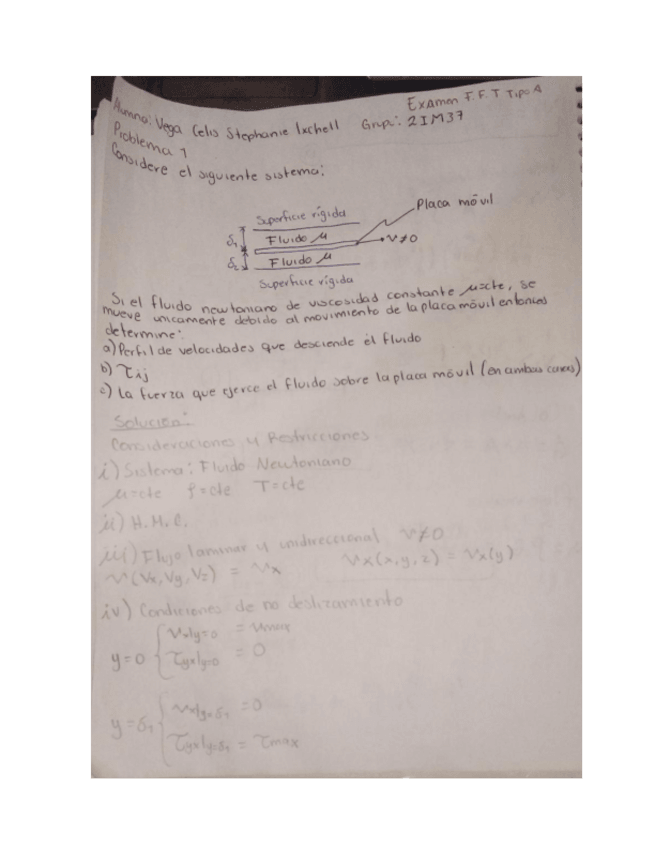 Examen F.F.T Tipo A
Alumna: Vega Celis Stephanie Ixchell Grupo: 2IM37
Problema 1
Considere el siguiente sistema:
Placa móvil
Superficie rígida
δ₁ Fluido μ v≠0
δ₂ Fluido μ
Superficie rígida
Si el fluido newtoniano de viscosidad constante μ=cte, se
mueve unicamente debido al movimiento de la placa móvil entonces
determine:
a) Perfil de velocidades que desciende el fluido
b) τij
c) La fuerza que ejerce el fluido sobre la placa móvil (en ambas caras)
Solución:
Consideraciones y Restricciones.
i) Sistema: Fluido Newtoniano
μ=cte ρ=cte T=cte
ii) H.M.C.
iii) Flujo laminar y unidireccional v≠0
v(Vx,Vy,Vz) = Vx Vx(x,y,z) = Vx(y)
iv) Condiciones de no deslizamiento
y=0 { Vx|y=0 = Vmax
τyx|y=0 = 0
y=δ₁ { Vx|y=δ₁ = 0
τyx|y=δ₁ = τmax